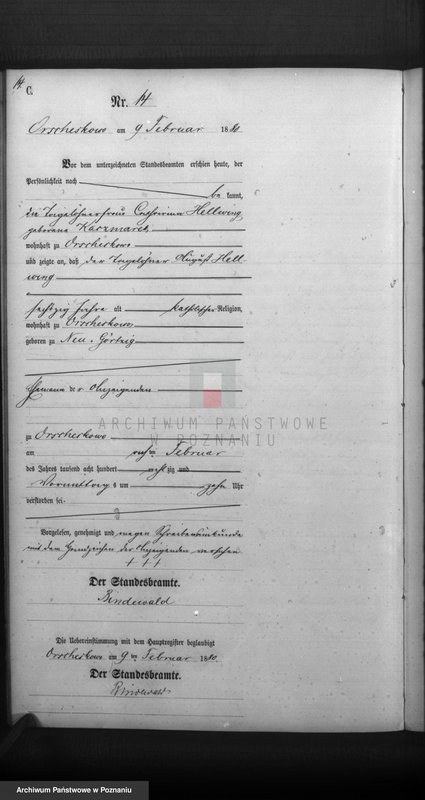 14
C.
Nr. 14
Orscheskowo am 9 Februar 1880
Vor dem unterzeichneten Standesbeamten erschien heute, der
Persönlichkeit nach
be kannt,
die Tagelöhnerfrau Catharina Hellwing
geborene Kaczmarek
wohnhaft zu Orscheskowo
und zeigte an, daß der Tagelöhner August Hell
wing
sechszig Jahre alt katholischer Religion,
wohnhaft zu Orscheskowo
geboren zu Neu-Görtzig
Ehemann der Anzeigenden
zu Orscheskowo
am Februar
des Jahres tausend acht hundert acht zig und
Vormittags um zehn Uhr
verstorben sei
Vorgelesen, genehmigt und wegen Schreibensunkunde
mit dem Handzeichen der Anzeigenden versehen
+ + +
Der Standesbeamte.
Bindewald
Die Uebereinstimmung mit dem Hauptregister beglaubigt
Orscheskowo am 9ten Februar 1880
Der Standesbeamte.
Bindewald
ARCHIWUM PAŃSTWOWE
W POZNANIU
Archiwum Państwowe w Poznaniu